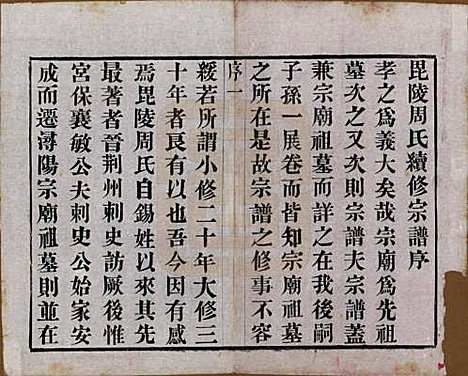 毘陵周氏續修宗譜序
孝之爲義大矣哉宗廟爲先祖
墓次之又次則宗譜夫宗譜蓋
兼宗廟祖墓而詳之在我後嗣
子孫一展卷而皆知宗廟祖墓
之所在是故宗譜之修事不容
序一
緩若所謂小修二十年大修三
十年者良有以也吾今因有感
焉毘陵周氏自錫姓以來其先
最著者晉荆州刺史訪厥後惟
宮保襄敏公夫刺史公始家安
成而遷潯陽宗廟祖墓則並在